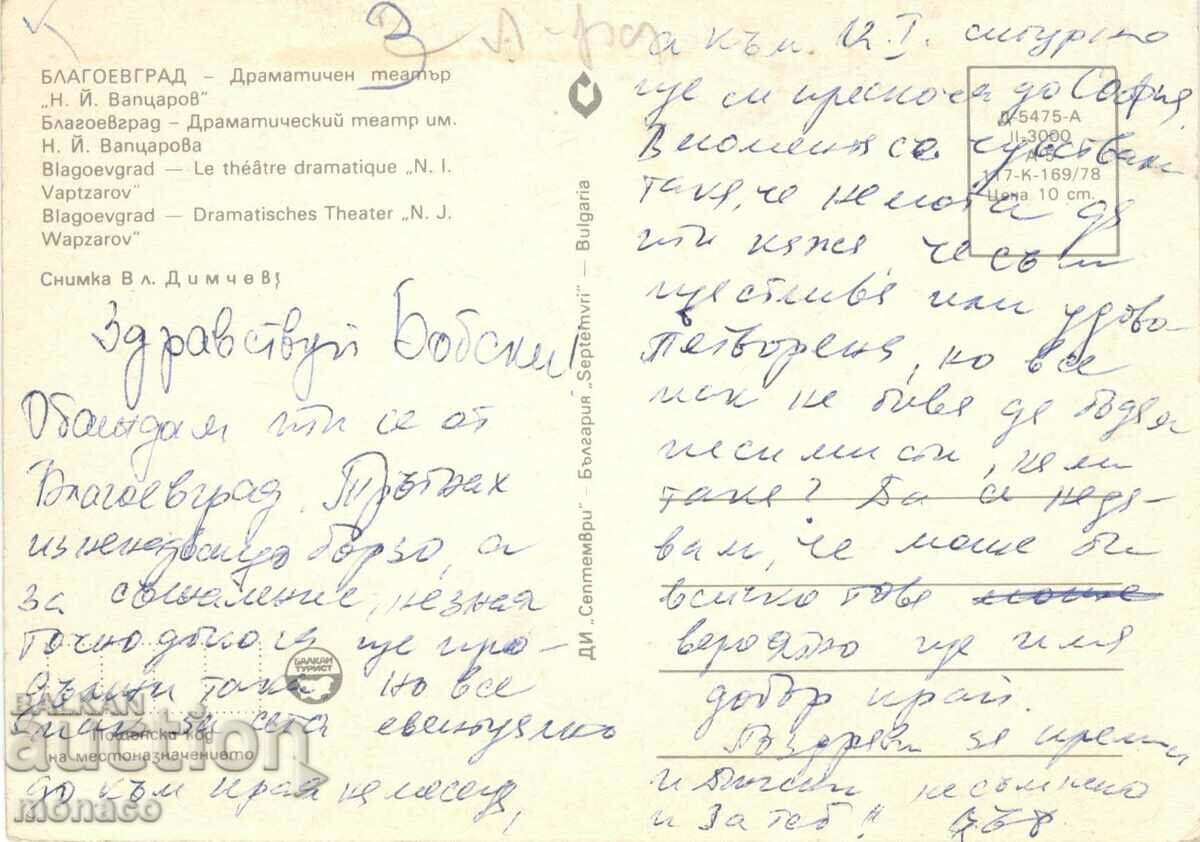 З
БЛАГОЕВГРАД – Драматичен театър
„Н. Й. Вапцаров"
Благоевград – Драматический театр им.
Н. Й. Вапцарова
Blagoevgrad — Le théâtre dramatique „N. I.
Vaptzarov"
Blagoevgrad — Dramatisches Theater „N. J.
Wapzarov"
Снимка Вл. Димчев
Здравствуй Бобски!
Обаждам ти се от
Благоевград. Тръгнах
изненадващо бързо, а
за съжаление, не зная
точно докога ще про-
дължи така но все
пак би сета евентуално
до към края на месеца,
БАЛКАН
ТУРИСТ
Пощенски код
на местоназначението
ДИ „Септември" – България „Septemvri" — Bulgaria
Д-5475-А
II-3000
117-К-169/78
Цена 10 ст.
а към 12.I. сигурно
ще си прескоча до София
В момента се чувствам
така, че не мога да
ти кажа, че съм
щастлива или удово-
летворена, но все
пак не бива да бъдем
песимисти, нали
така? Да се надя-
вам, че може би
всичко това
вероятно ще има
добър край.
Поздрави на
и несъмнено
и за теб!
BALKAN
auction
monaco